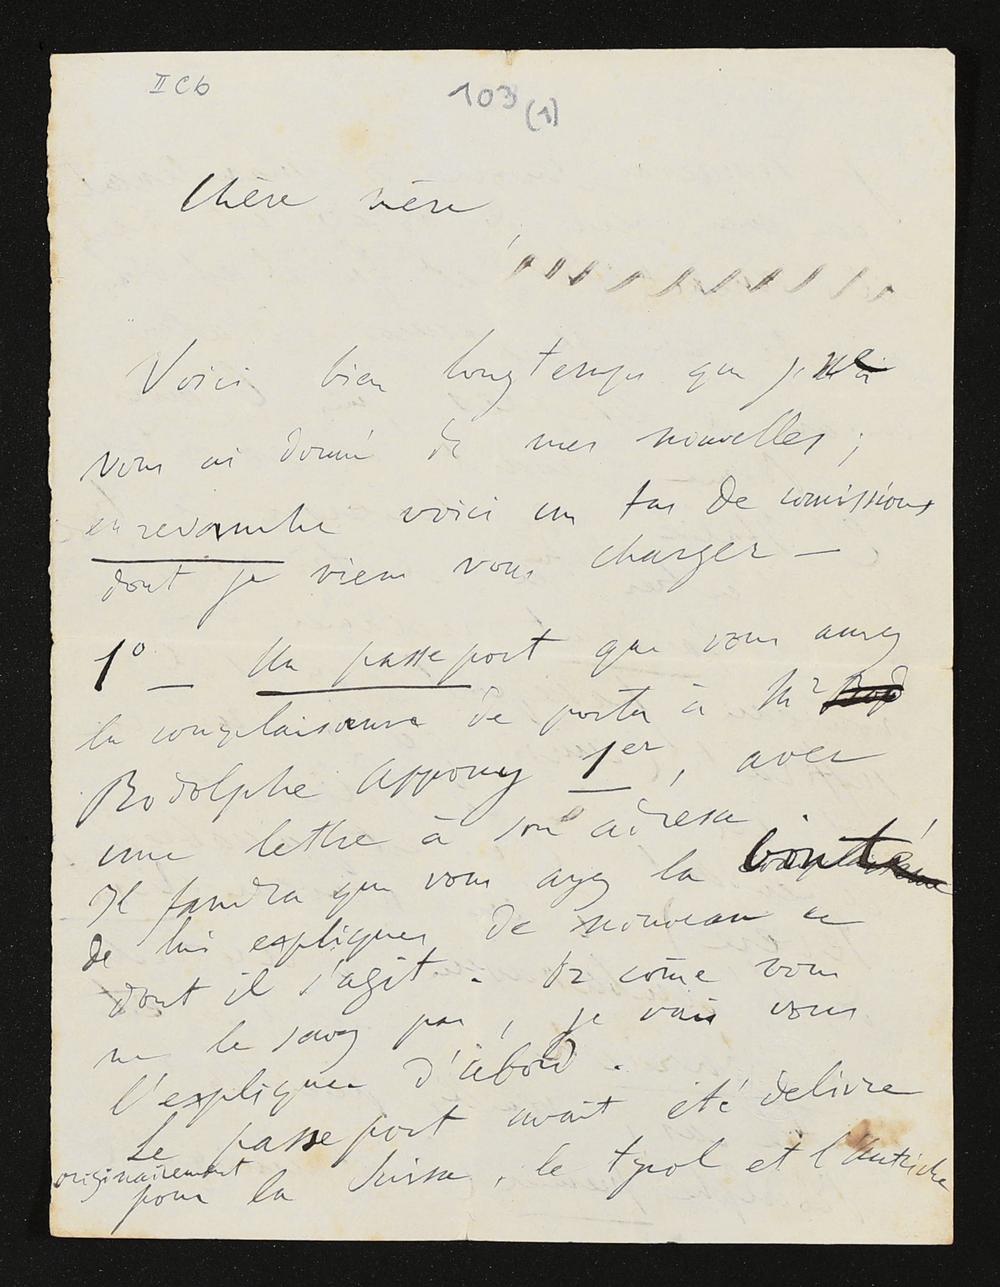 II Cb
103 (1)
Chère mère
Voici bien longtemps que je ne
vous ai donné de mes nouvelles ;
en revanche voici un tas de comissions
dont je viens vous charger —
1° — Un passeport que vous aurez
la complaisance de porter à Mr
Rodolphe Appony 1er, avec
une lettre à son adresse
Il faudra que vous ayez la bonté
de lui expliquer de nouveau ce
dont il s'agit. Or come vous
ne le savez pas, je vais vous
l'expliquer d'abord.
Le passeport avait été delivre
originairement
pour la Suisse, le tyrol et l'Autriche